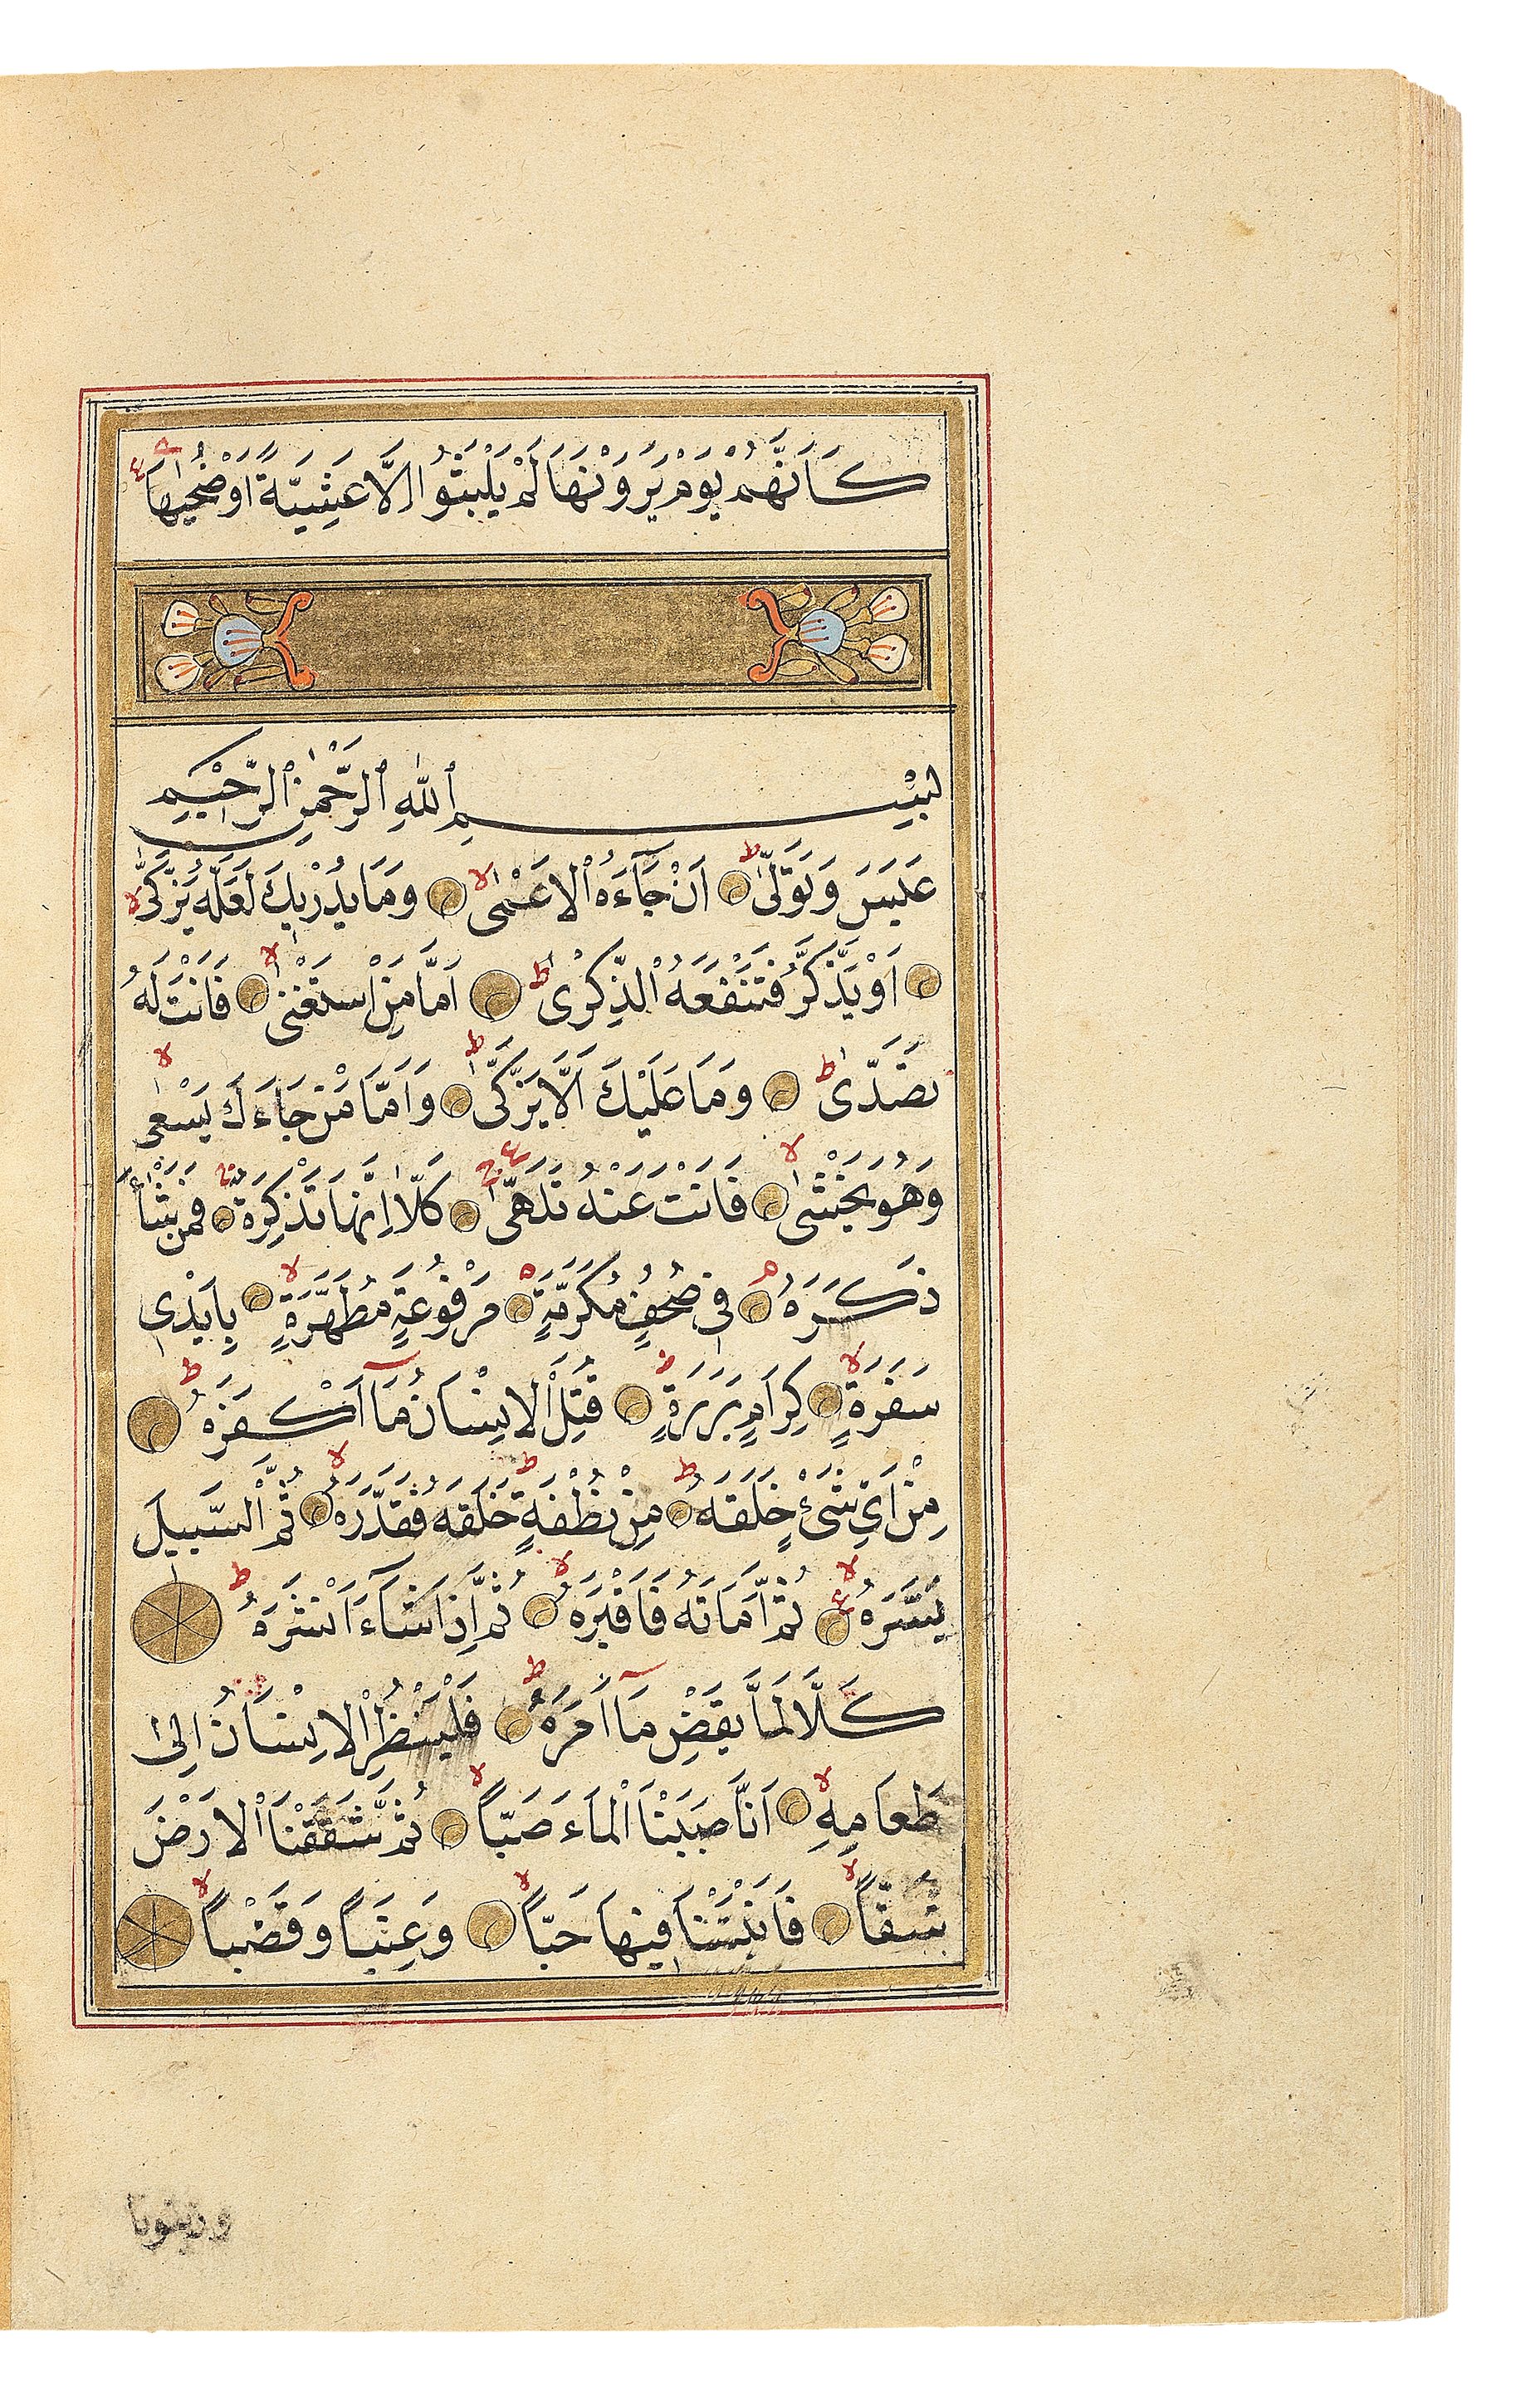 كَاَنَّهُمْ يَوْمَ يَرَوْنَهَا لَمْ يَلْبَثُوا اِلَّا عَشِيَّةً اَوْ ضُحٰيهَا ع
بِسْمِ ٱللّٰهِ ٱلرَّحْمٰنِ ٱلرَّحِيْمِ
عَبَسَ وَتَوَلّٰى ط اَنْ جَآءَهُ الْاَعْمٰى لا وَمَا يُدْرٖيكَ لَعَلَّهُ يَزَّكّٰى لا
اَوْ يَذَّكَّرُ فَتَنْفَعَهُ الذِّكْرٰى ط اَمَّا مَنِ اسْتَغْنٰى لا فَاَنْتَ لَهُ
تَصَدّٰى ط وَمَا عَلَيْكَ اَلَّا يَزَّكّٰى ط وَاَمَّا مَنْ جَاءَكَ يَسْعٰى لا
وَهُوَ يَخْشٰى لا فَاَنْتَ عَنْهُ تَلَهّٰى ج كَلَّا اِنَّهَا تَذْكِرَةٌ ج فَمَنْ شَاءَ
ذَكَرَهُ م فٖى صُحُفٍ مُكَرَّمَةٍ ه مَرْفُوعَةٍ مُطَهَّرَةٍ لا بِاَيْدٖى
سَفَرَةٍ لا كِرَامٍ بَرَرَةٍ ط قُتِلَ الْاِنْسَانُ مَآ اَكْفَرَهُ ط
مِنْ اَىِّ شَىْءٍ خَلَقَهُ ط مِنْ نُطْفَةٍ ط خَلَقَهُ فَقَدَّرَهُ لا ثُمَّ السَّبٖيلَ
يَسَّرَهُ لا ثُمَّ اَمَاتَهُ فَاَقْبَرَهُ لا ثُمَّ اِذَا شَآءَ اَنْشَرَهُ ط
كَلَّا لَمَّا يَقْضِ مَآ اَمَرَهُ ط فَلْيَنْظُرِ الْاِنْسَانُ اِلٰى
طَعَامِهٖ لا اَنَّا صَبَبْنَا الْمَاءَ صَبًّا لا ثُمَّ شَقَقْنَا الْاَرْضَ
شَقًّا لا فَاَنْبَتْنَا فٖيهَا حَبًّا لا وَعِنَبًا وَقَضْبًا لا
وزيتونا